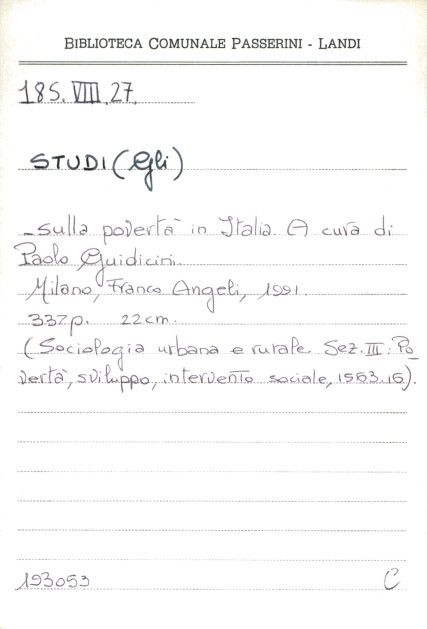 BIBLIOTECA COMUNALE PASSERINI - LANDI
185.VIII.27.
STUDI (Gli)
- sulla povertà in Italia. A cura di
Paolo Guidicini.
Milano, Franco Angeli, 1991.
337p. 22cm.
(Sociologia urbana e rurale. Sez. III: Po
vertà, sviluppo, intervento sociale, 1563.16).
193053
C